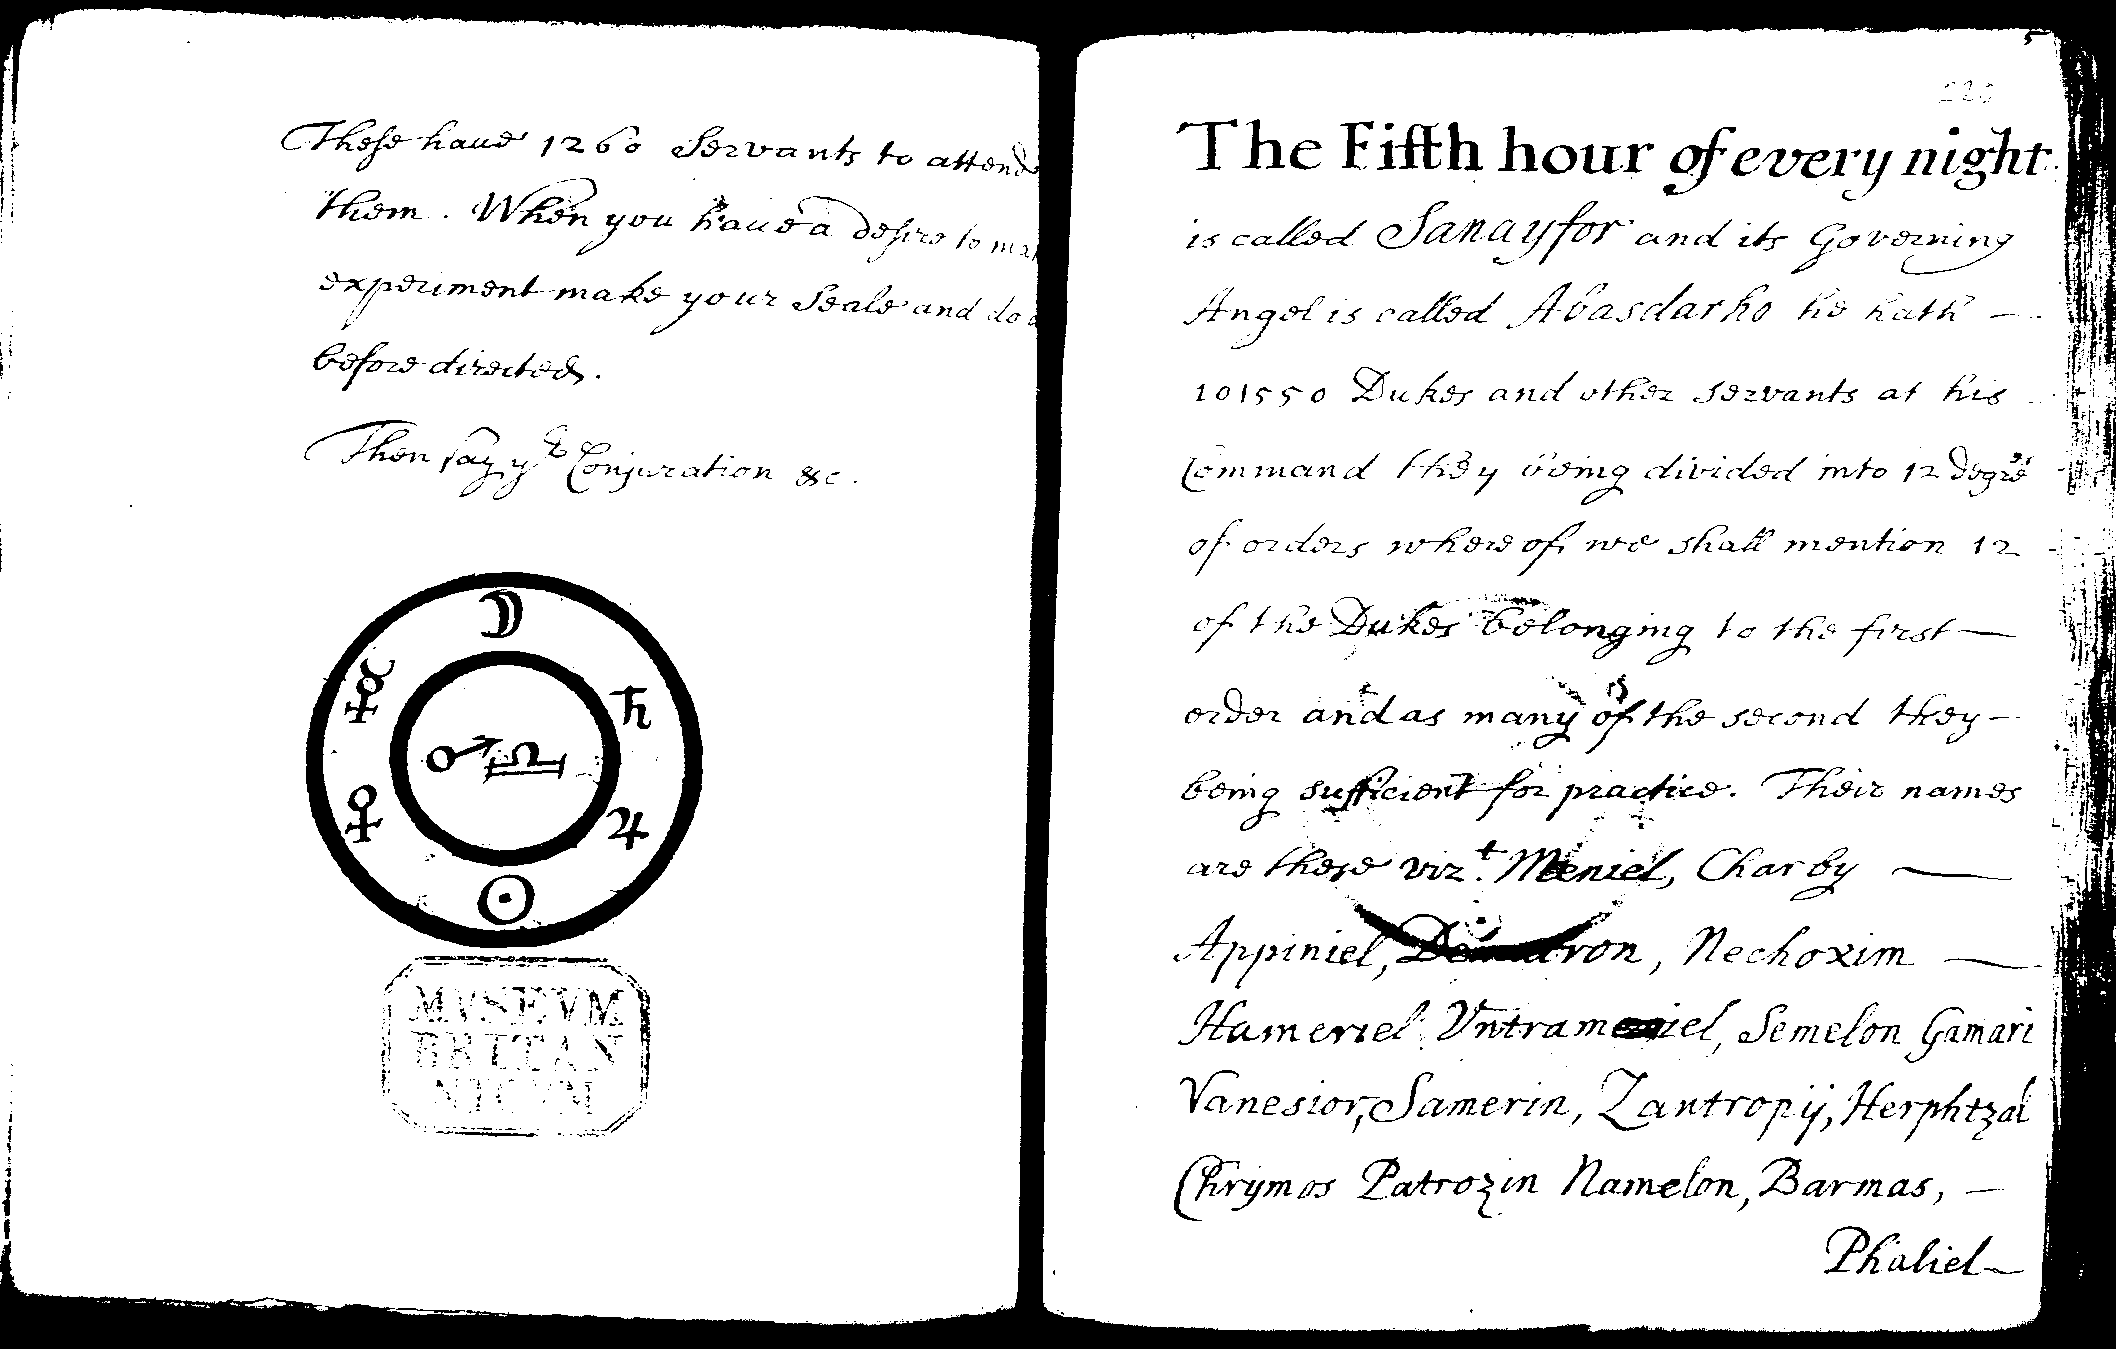 These haue 1260 Servants to attend
them. When you haue a desire to
experiment make your Seale and do
before directed.
Then say yͤ Conjuration &c.
MVSEVM
BRITAN
NICVM
5
220
The Fifth hour of every night
is called Sanayfor and its Governing
Angel is called Abasdarho he hath —
101550 Dukes and other servants at his
Command they being divided into 12 degrees
of orders where of we shall mention 12
of the Dukes belonging to the first —
order and as many of the second they —
being sufficient for practice. Their names
are these vizt. Meniel, Charby —
Appiniel, Nechoxim —
Hameriel Vntrameniel, Semelon Gamari
Vanesior, Samerin, Zantropij, Herphtzal
Chrymos Patrozin Namelon, Barmas, —
Phaliel —